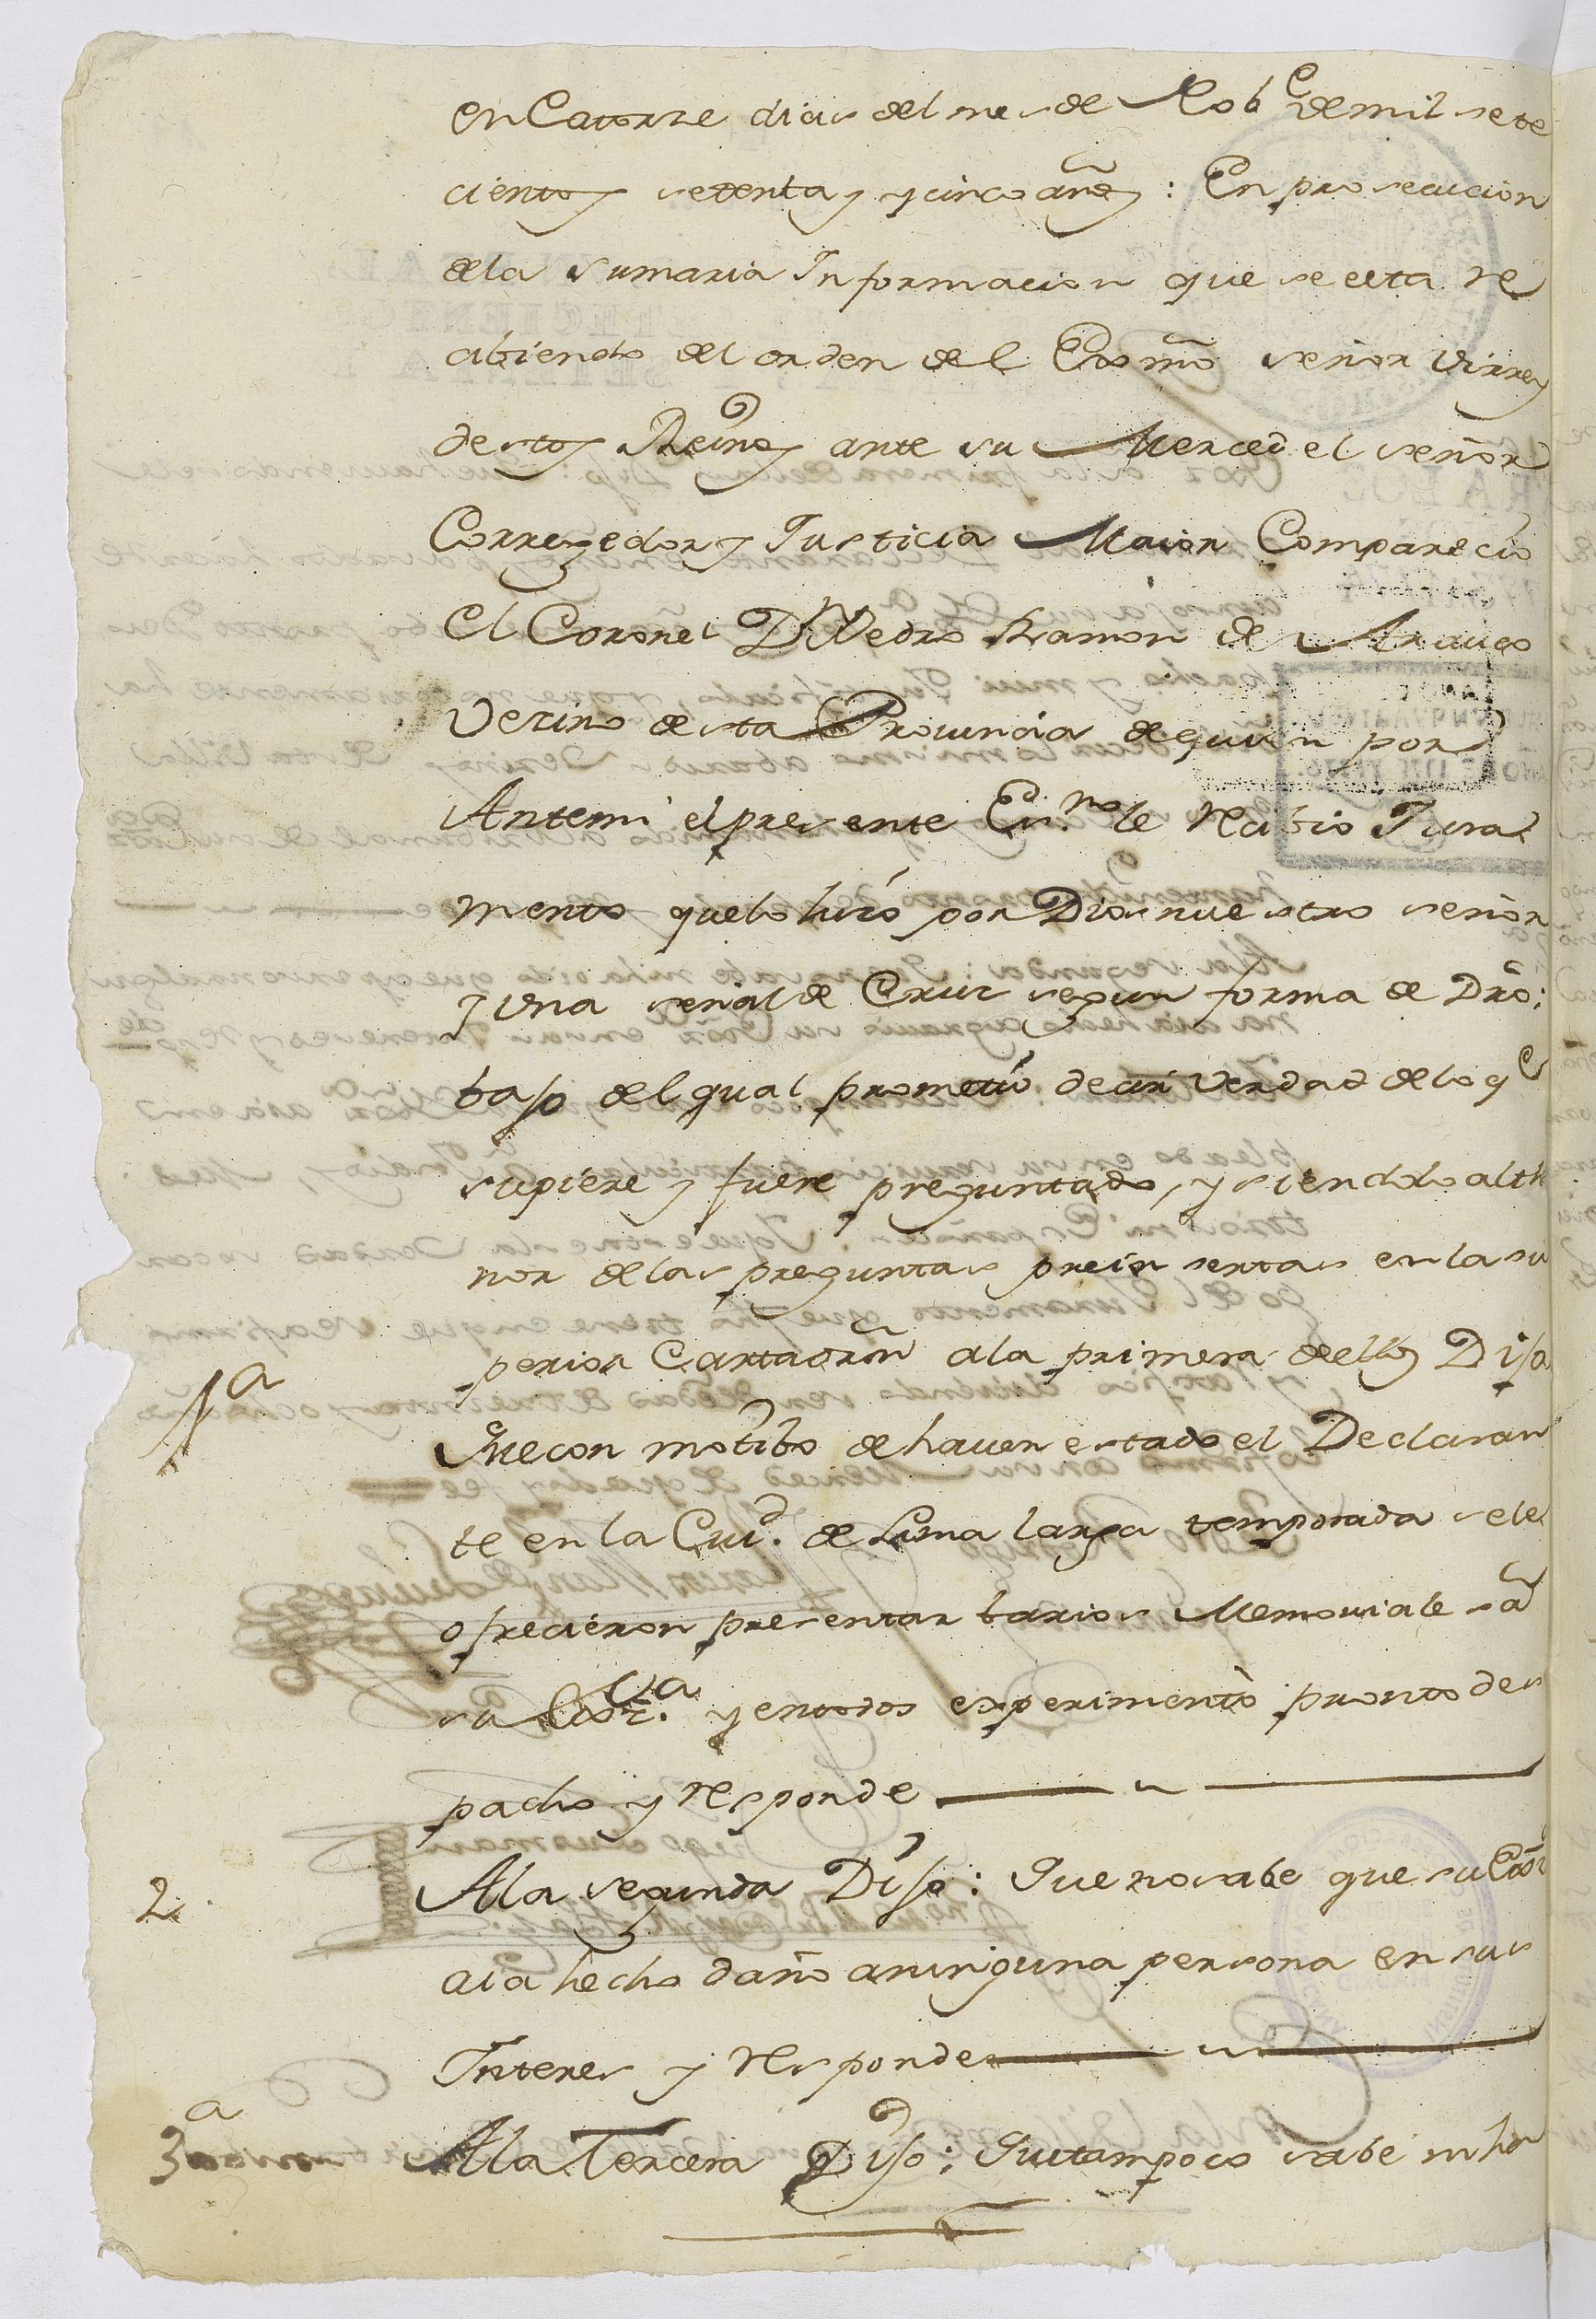 en Catorze dias del mes de Nobe de mil sete
cientos setenta y cinco años: En prosecucion
dela sumaria Informacion que se esta re
cibiendo del orden del Exmo señor Virrey
destos Reinos ante su Merced el señor
Corregedor y Justicia Maior Comparecio
el Coronel Dn Pedro Ramon de Arauco
Vezino desta Provincia dequien por
Antemi el presente Esno le Recibio Jura
mento quelo hizo por Dios nuestro señor
y una señal de Cruz segun forma de Dro:
bajo del qual prometio decir verdad delo qe
supiere y fuere preguntado, y siendolo al the
nor delas preguntas preinsertas en la su
perior Carta orn
1a
ala primera dellas Dijo
Que con motibo de haver estado el Declaran
te en la Ciud. de Lima larga temporada sele
ofrecieron presentar barios Memoriales â
su Exca. y entodos experimentò pronto des
pacho y responde
2
Ala segunda Dijo: Que no sabe que su Exca
aia hecho daño aninguna persona en sus
Interes y responde
3a
Ala Tercera Dijo: Que tampoco sabe ni ha